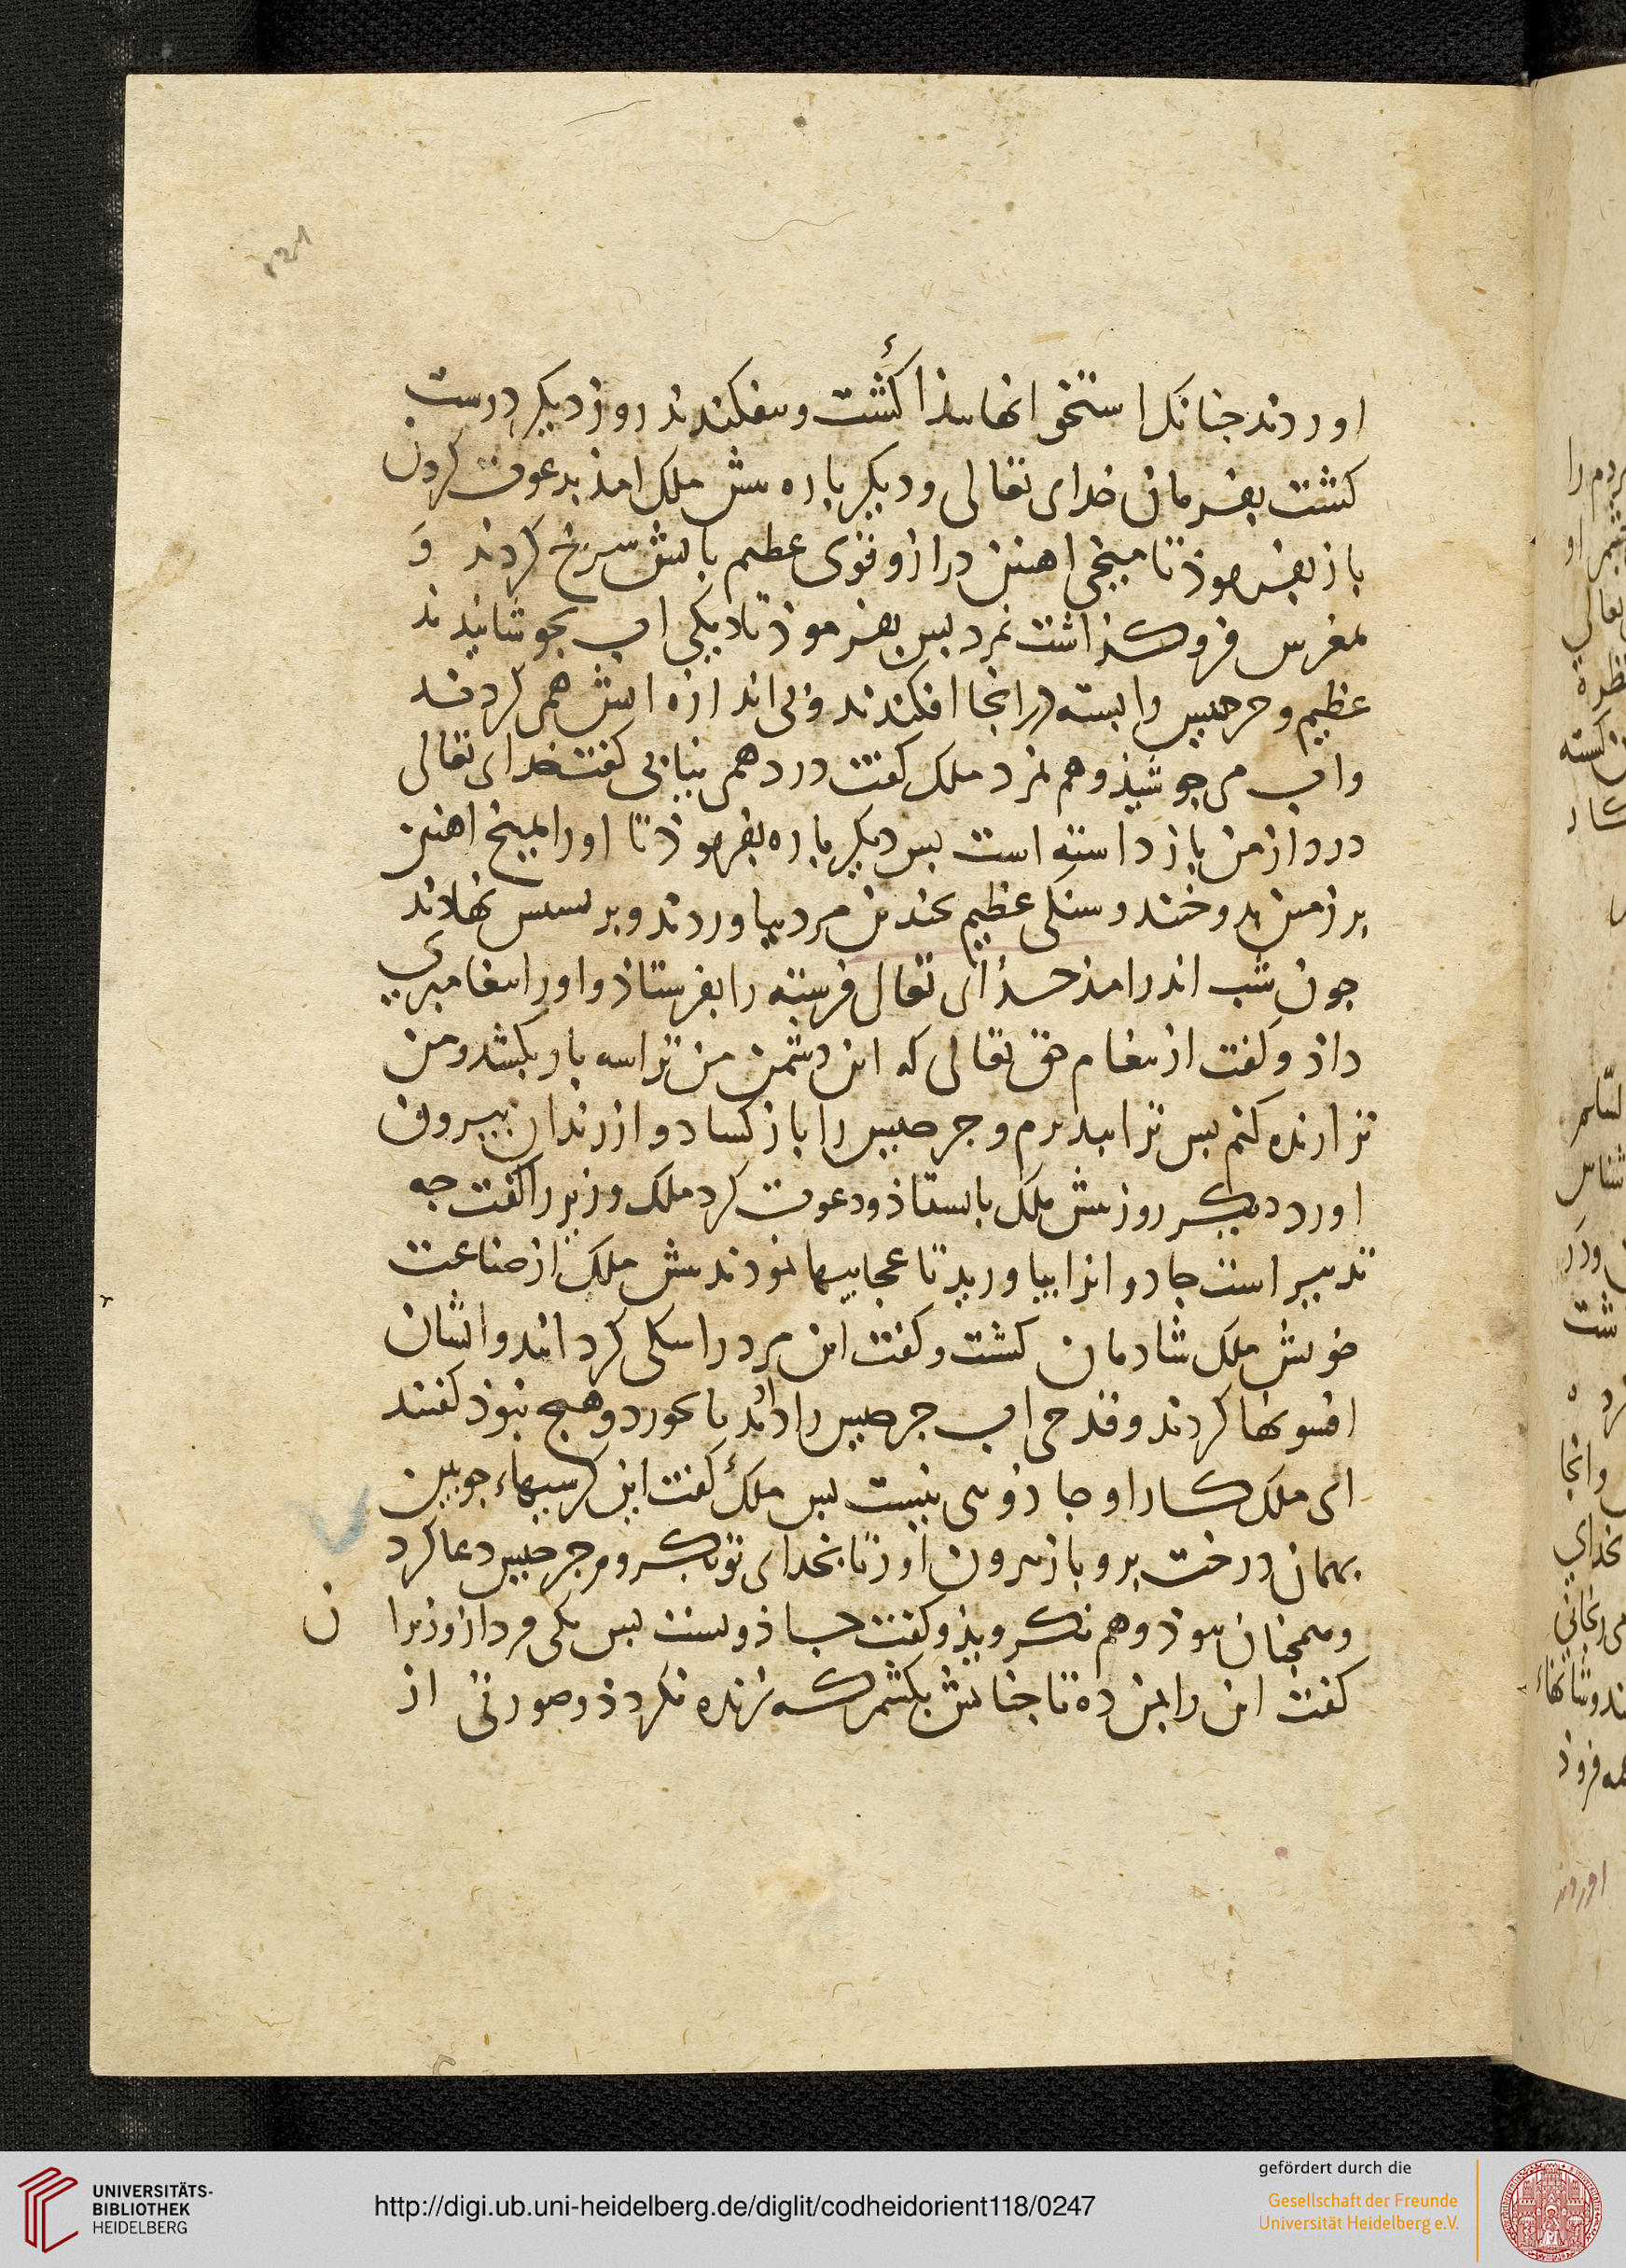 اوردند جنانک استخوانها بیذا کشت و بیفکندند روز دیکر درست
کشت بفرمان خدای تعالی و دیکر باره پیش ملک امذ بدعوت کردن
باز بفرموذ تا میخی اهنین دراز و قوی عظیم باتش سرخ کردند و
بمغزش فروکذاشت نمرد پس بفرموذ تا دیکی اب بجوشانیدند
عظیم و جرجیس را بسته درانجا افکندند و بی اندازه اتش همی کردند
واب می جوشیذ و هم نمرد ملک کفت درد همی نیابی کفت خدای تعالی
درد از من باز داشته است بس دیکر باره بفرموذ تا او را بمیخ اهنین
بر زمین بدوختند و سنکی عظیم بجندین مرد بیاوردند و بر پشتش نهادند
جون شب اندر امذ خذای تعالی فرشته را بفرستاذ و او را بیغامبری
داذ و کفت از بیغام حق تعالی که این دشمن من ترا سه بار بکشد و من
ترا زنده کنم بس ترا ببذیرم و جرجیس را باز کشاد و از زندان بیرون
اورد دیکر روز پیش ملک بایستاذ و دعوت کرد ملک وزیر را کفت جه
تدبیر است جادوانرا بیاورید تا عجایبها نمودند پیش ملک از صناعت
خویش ملک شادمان کشت و کفت این مرد را سکی کرداند و ایشان
افسونها کردند و قدحی اب جرجیس را دادند تا بخورد و هیج نبوذ کفتند
ای ملک کار او جاذوی نیست بس ملک کفت این کرسیهاء جوبین
بهمان درخت برو باز بیرون اور تا بخدای تو بکرویم جرجیس دعا کرد
و همجنان ببوذ و هم نکرویذ و کفت جاذوست بس یکی مرد از وزیرا ن
کفت این را بمن ده تا جنانش بکشم که زنده نکردذ و صورتی از
UNIVERSITÄTS-
BIBLIOTHEK
HEIDELBERG
http://digi.ub.uni-heidelberg.de/diglit/codheidorient118/0247
gefördert durch die
Gesellschaft der Freunde
Universität Heidelberg e.V.